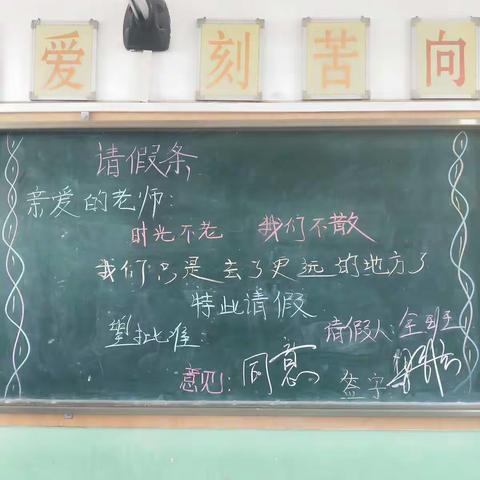 爱 刻 苦 向
请假条
亲爱的老师：
时光不老 我们不散
我们只是去了更远的地方了
特此请假
望批准
请假人：全班
意见：同意
签字：